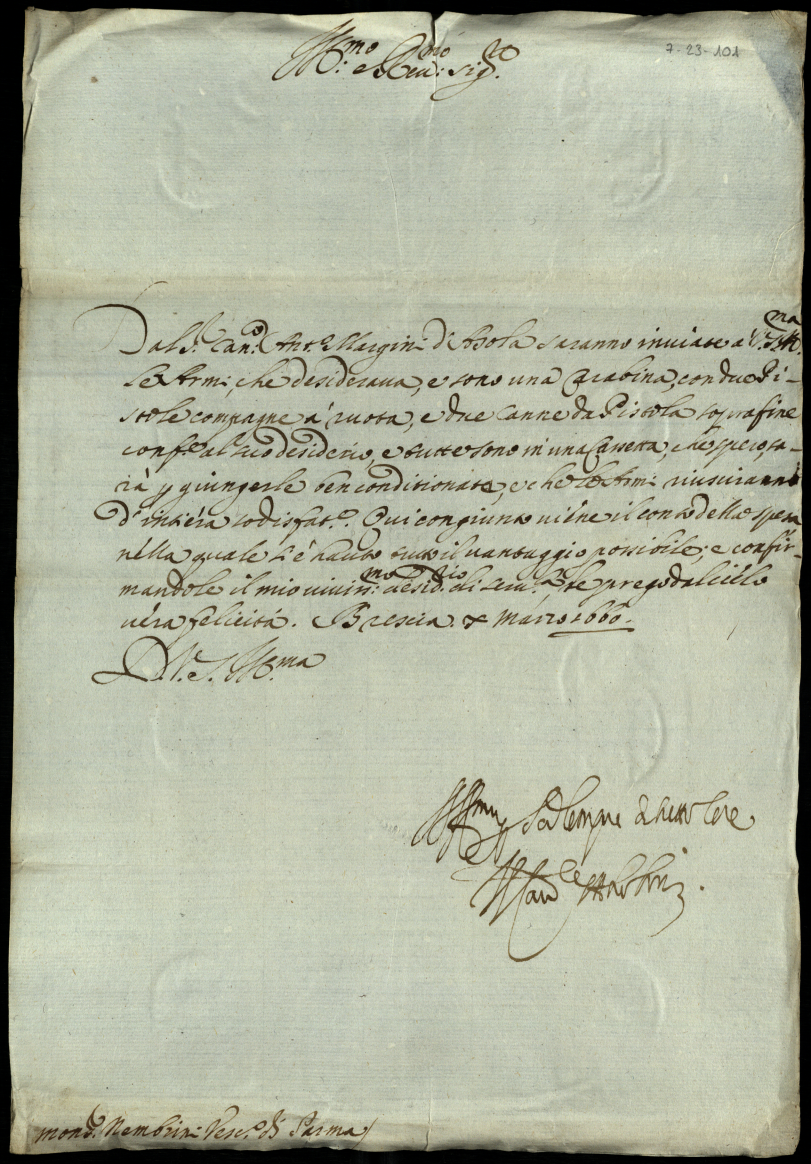 7-23-101
Ill.mo e Reu.mo Sig.re
Dal S.r Can.co Ant.o Margini d'Asola saranno inuiate a V.S. Ill.ma
le Armi, che desideraua, e sono una Carabina, con due Pi-
stole compagne à ruota, e due Canne da Pistola soprafine
conf.e al suo desiderio, e tutte sono in una Cassetta, che spero, sa-
rà p giungerle ben conditionata, e che le Armi riusciranno
d'intiéra sodisfat.e Qui congiunto uiene il conto della spesa
nélla quale s'é hauto tutto il uantaggio possibile; e confir-
mandole il mio viuiss.mo desid.rio di seru.la, le prego dal ciélo
uéra felicità. Brescia marzo 1660.
D. V. S. Ill.ma
Mons.r Nembrini Vesc.o di Parma